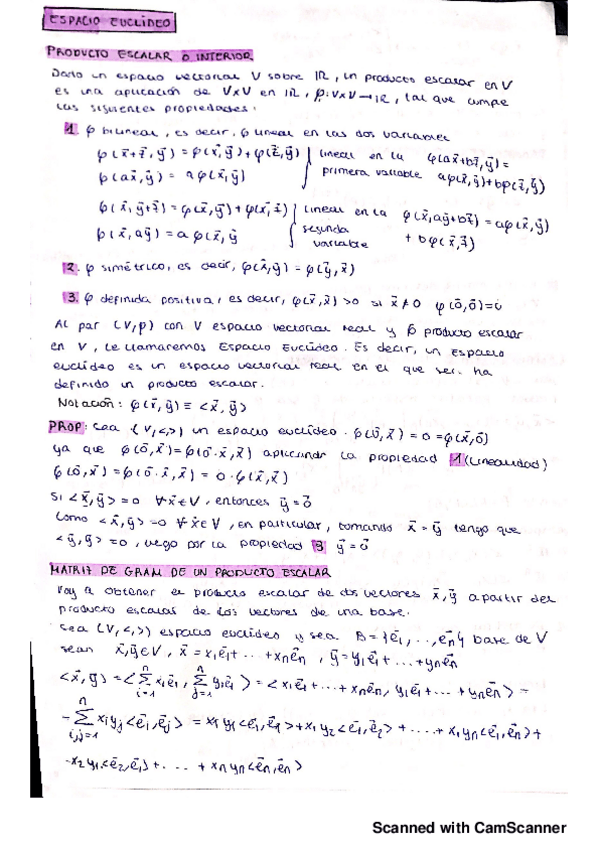 ESPACIO EUCLÍDEO
PRODUCTO ESCALAR O INTERIOR
Dado un espacio vectorial V sobre IR, un producto escalar en V
es una aplicación de VxV en IR, φ:VxV→IR, tal que cumple
las siguientes propiedades:
1. φ bilineal, es decir, φ lineal en las dos variables
φ(x⃗+z⃗,y⃗) = φ(x⃗,y⃗)+φ(z⃗,y⃗) lineal en la φ(ax⃗+bz⃗,y⃗)=
φ(ax⃗,y⃗) = aφ(x⃗,y⃗) primera variable aφ(x⃗,y⃗)+bφ(z⃗,y⃗)
φ(x⃗,y⃗+z⃗)=φ(x⃗,y⃗)+φ(x⃗,z⃗) lineal en la φ(x⃗,ay⃗+bz⃗)=aφ(x⃗,y⃗)
φ(x⃗,ay⃗)=aφ(x⃗,y⃗ segunda + bφ(x⃗,z⃗)
variable
2. φ simétrico, es decir, φ(x⃗,y⃗)=φ(y⃗,x⃗)
3. φ definida positiva, es decir, φ(x⃗,x⃗)>0 si x⃗≠0 φ(0⃗,0⃗)=0
Al par (V,φ) con V espacio vectorial real y φ producto escalar
en V, le llamaremos Espacio Euclídeo. Es decir, un espacio
euclídeo es un espacio vectorial real en el que se ha
definido un producto escalar.
Notación: φ(x⃗,y⃗) ≡ <x⃗,y⃗>
PROP: Sea (V,<,>) un espacio euclídeo. φ(0⃗,x⃗)=0=φ(x⃗,0⃗)
ya que φ(0⃗,x⃗)=φ(0·x⃗,x⃗) aplicando la propiedad 1 (linealidad)
φ(0⃗,x⃗)=φ(0·x⃗,x⃗)=0·φ(x⃗,x⃗)
Si <x⃗,y⃗>=0 ∀x⃗∈V, entonces y⃗=0⃗
Como <x⃗,y⃗>=0 ∀x⃗∈V, en particular, tomando x⃗=y⃗ tengo que
<y⃗,y⃗>=0, luego por la propiedad 3 y⃗=0⃗
MATRIZ DE GRAM DE UN PRODUCTO ESCALAR
Voy a obtener el producto escalar de dos vectores x⃗,y⃗ a partir del
producto escalar de los vectores de una base.
Sea (V,<,>) espacio euclídeo y sea B={e⃗1,..,e⃗n} base de V
sean x⃗,y⃗∈V, x⃗=x1e⃗1+...+xne⃗n, y⃗=y1e⃗1+...+yne⃗n
<x⃗,y⃗>=<∑ni=1 xie⃗i, ∑nj=1 yje⃗j>=<x1e⃗1+...+xne⃗n, y1e⃗1+...+yne⃗n>=
=∑ni,j=1 xiyj<e⃗i,e⃗j>=x1y1<e⃗1,e⃗1>+x1y2<e⃗1,e⃗2>+...+x1yn<e⃗1,e⃗n>+
+x2y1<e⃗2,e⃗1>+...+xnyn<e⃗n,e⃗n>
Scanned with CamScanner